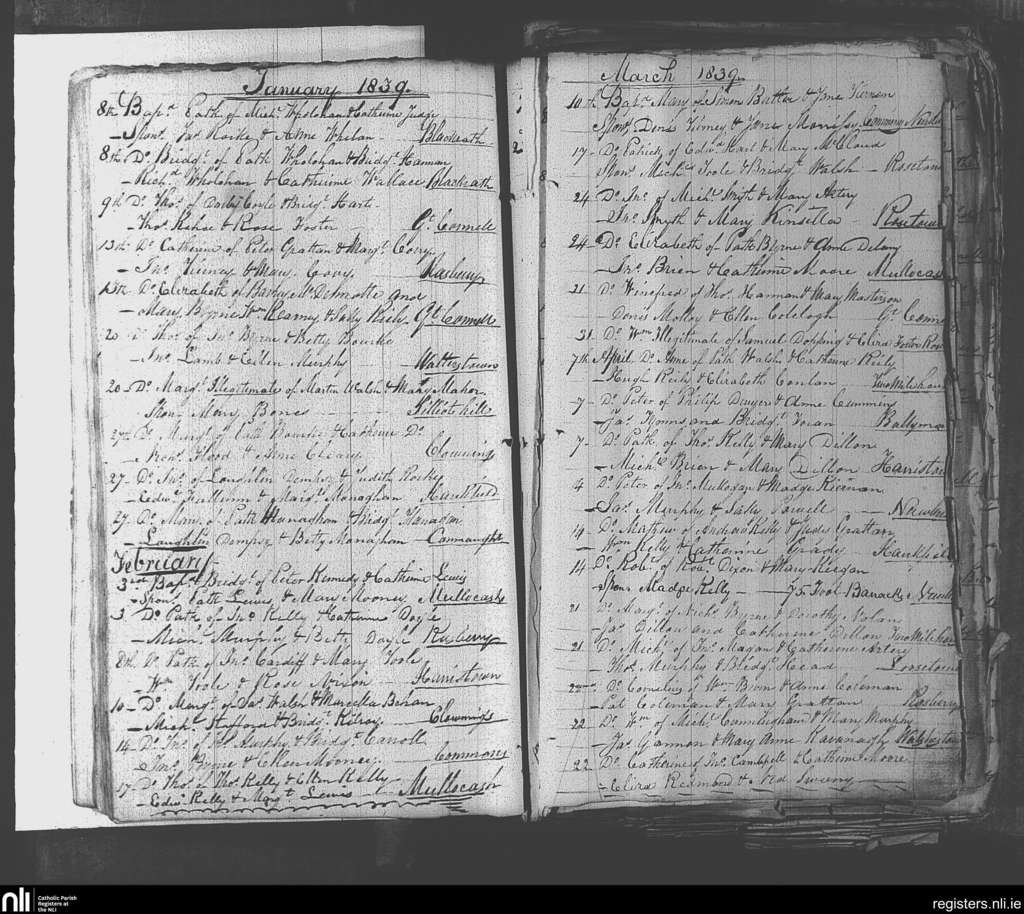 January 1839.
8th Bapd. Path of Michl. Wholohan & Catherine Judge
Spons. Jas. & Anne Whelan Blackrath
8th Do. Bridgt. of Path Wholohan & Bridgt. Hannan
Richd. Wholohan & Catherine Wallace Blackrath
9th Do. Thos. of Coyle & Bridgt. Hart
Thos. Kehoe & Rose Foster Gt. Connell
13th Do. Catherine of Peter Grattan & Margt. Corry
Jno. Tierney & Mary Corry Rosberry
Do. Elizabeth of and
Mary Byrne Wm. Kearney & Sally Gt. Connell
20 Do. Thos. of Jno. Byrne & Betty Bourke
Jno. Lamb & Eellen Murphy Walterstown
20 Do. Margt. Illegitimate of Martin Walsh & Mary Mahon
Spon. Mary Bones Silliothill
27th Do. Margt. of Path Bourke & Catherine Do.
Flood & Anne Cleary Clownings
27. Do. Jno. of Loughlin Dempsy & Judith
Edwd. & Margt. Monaghan
27. Do. Mary of Path Munaghan & Bridgt. Flanagan
Laughlin Dempsy & Betty Monaghan Connaught
February
3rd Bapd. Bridgt. of Peter Kennedy & Catherine Lewis
Spons. Path Lewis & Mary Mooney Mullocash
3 Do. Path of Jno. Kelly & Catherine Doyle
Michl. Murphy & Betty Doyle Rosberry
8th Do. Path of Jno. Cardiff & Mary Toole
Wm. Toole & Rose Nixon Harristown
10 Do. Margt. of Jas. Walsh & Marcella Behan
Michl. Stafford & Bridgt. Kilroy Clownings
14 Do. Jno. of Murphy & Bridgt. Carroll
Jno. Byrne & Ellen Mooney Commons
17 Do. Thos. of Thos. Kelly & Ellen Kelly
Edwd. Kelly & Margt. Lewis Mullocash
March 1839.
10th Bapd. Mary of Simon Butter & Jane Kiernan
Spons. Denis Tierney & Jane Morrissy Commons
17 Do. Patrick of Edwd. Hart & Mary McCloud
Spons. Michl. Toole & Bridgt. Walsh Rosetown
24 Do. Jno. of Michl. Smyth & Mary Artery
Jno. Smyth & Mary Kinsella
24 Do. Elizabeth of Path Byrne & Anne Delany
Jno. Brien & Catherine Moore Mullocash
21 Do. Winefred of Thos. Hannan & Mary Masterson
Denis Molloy & Ellen Colclogh Gt. Conne
31 Do. Wm. Illegitimate of Samuel Dopping & Eliza Foster
7th April Do. Anne of Path Walsh & Catherine Reily
Hugh Reily & Elizabeth Conlan
7 Do. Peter of Philip Dwyer & Anne Cummins
Jas. and Bridgt. Foran
7 Do. Path of Thos. Kelly & Mary Dillon
Michl. Brian & Mary Dillon Harristown
4 Do. Peter of Jno. & Madge Kiernan
Jas. Murphy & Sally Farrell
14 Do. Mathew of Andrew Kelly & Judy Grattan
Wm. Kelly & Catherine Grady
14 Do. Robt. of Robt. Dixon & Mary Keegan
Spon. Madge Kelly 75 Foot Barracks
21 Do. Margt. of Michl. Byrne & Dorothy Nolan
Jas. Dillon and Catherine Dillon
21 Do. Michl. of Jno. Magan & Catherine Artery
Thos. Murphy & Bridgt. Head
Do. Cornelius of Wm. Brien & Anne Coleman
Pat Coleman & Mary Grattan Rosberry
22 Do. Wm. of Michl. Cunningham & Mary Murphy
Jas. Gannon & Mary Anne Kavanagh
22 Do. Catherine of Jno. Campbell & Catherine Moore
Eliza Redmond & Ned Sweeny
nli Catholic Parish
Registers at
the NLI
registers.nli.ie